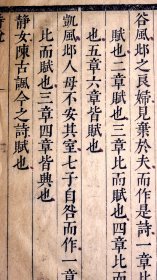 谷風邶之良婦見棄於夫而作是詩一章
賦也二章賦也三章比而賦也四章比
也五章六章皆賦也
凱風邶人母不安其室七子自咎而作一章
比而賦也三章四章皆興也
靜女陳古諷今之詩賦也